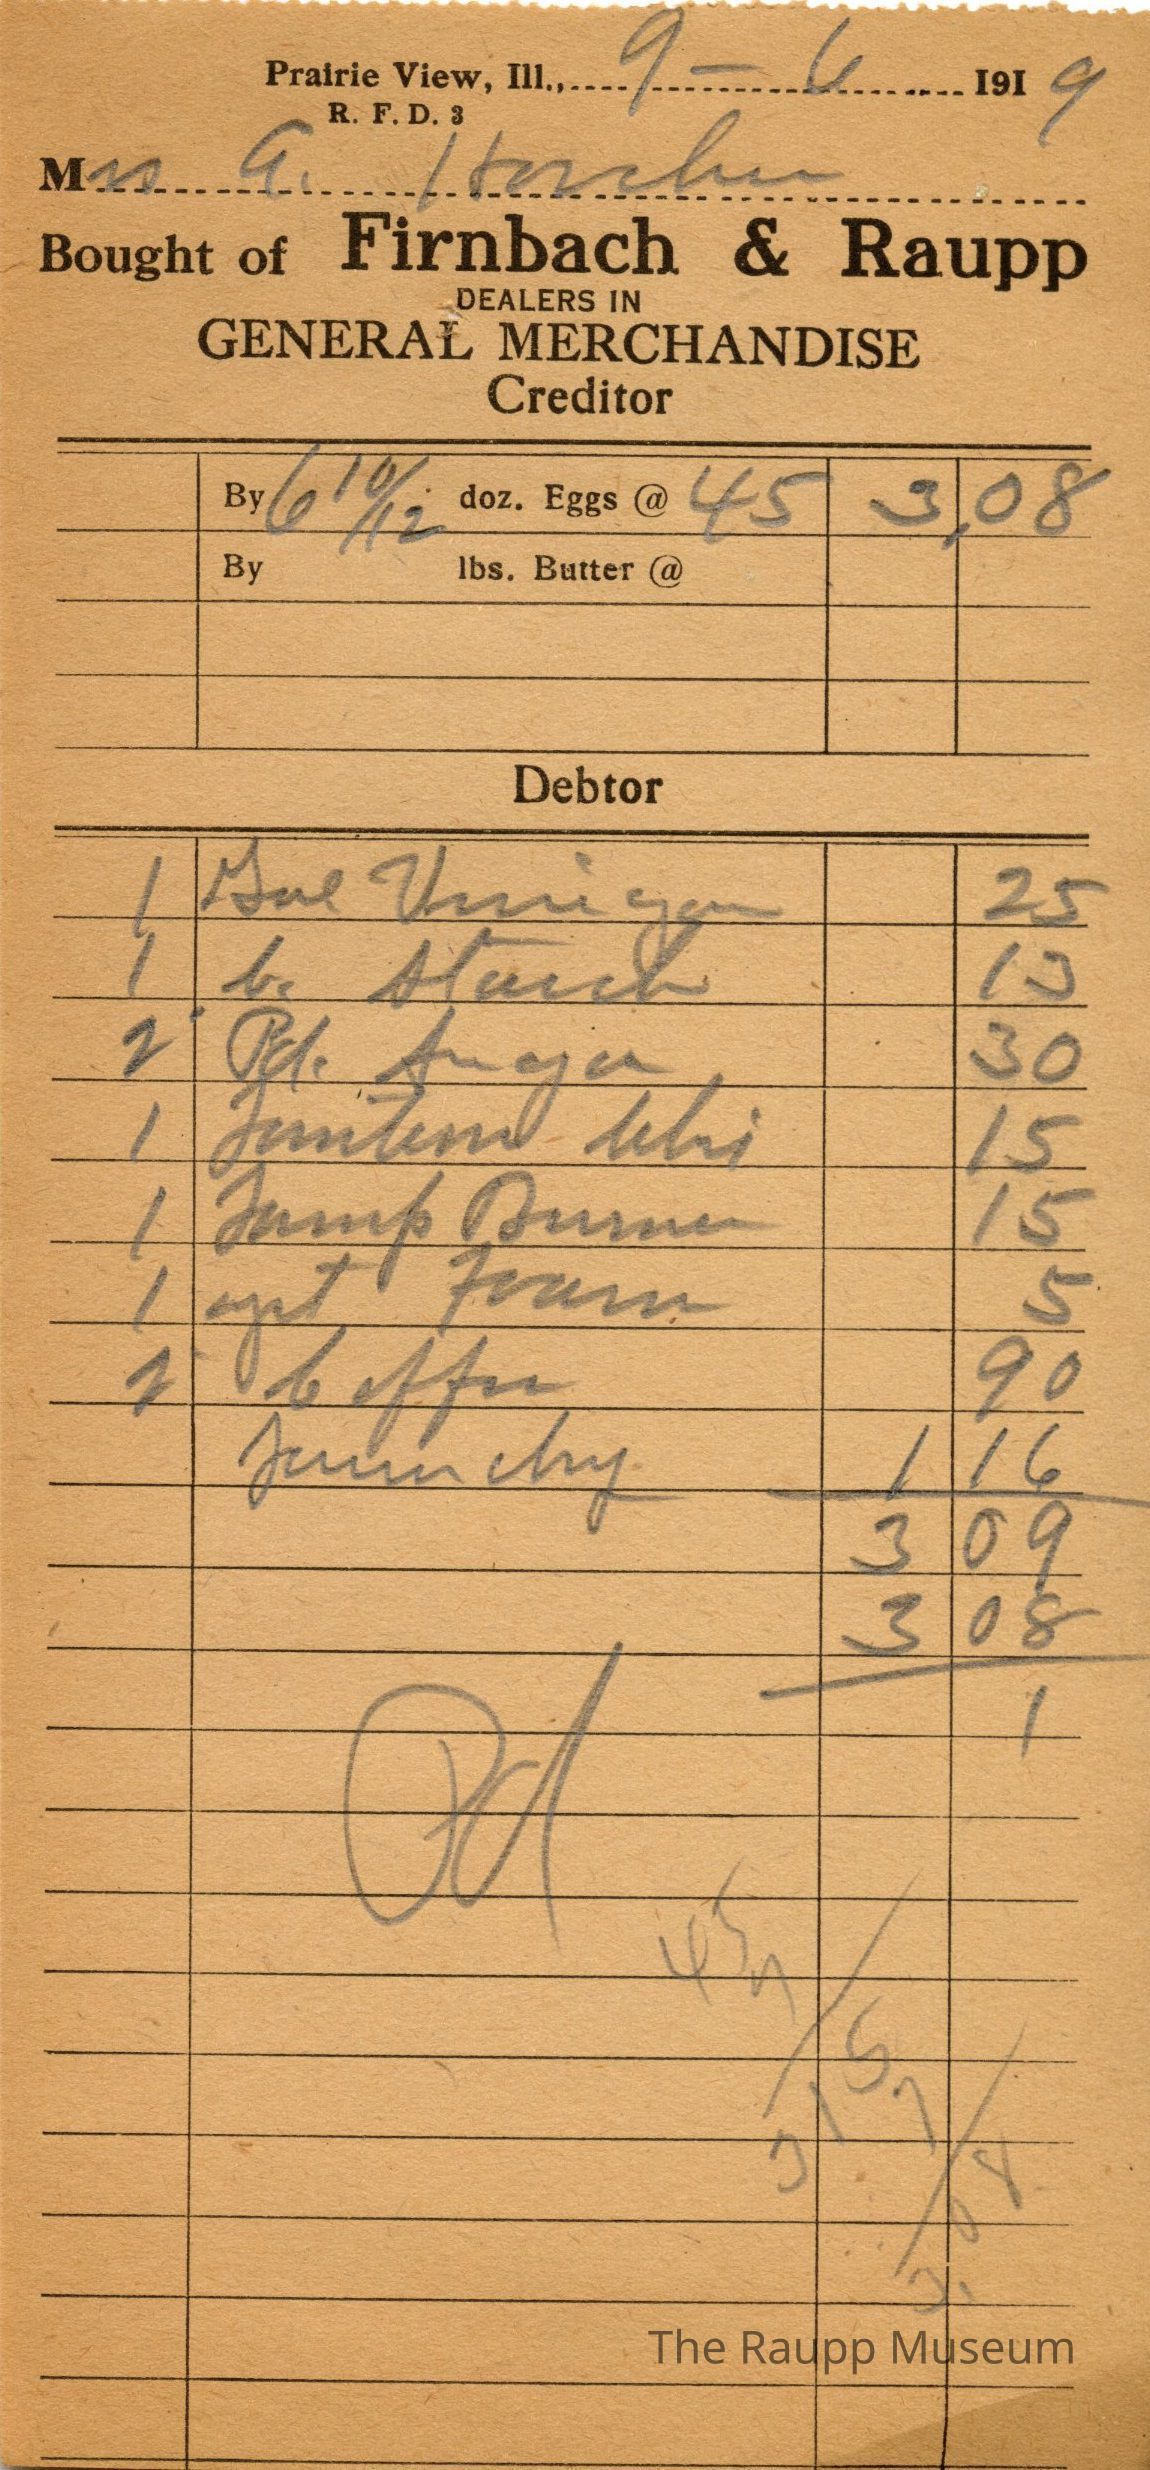 Prairie View, Ill., 9 - 6 1919
R. F. D. 3
Mrs A. Horcher
Bought of Firnbach & Raupp
DEALERS IN
GENERAL MERCHANDISE
Creditor
By 6 10/12 doz. Eggs @ 45 3,08
By lbs. Butter @
Debtor
1 Gal Vinegar 25
1 b. Starch 13
2 Pd. Sugar 30
1 Lantern 15
1 Lamp Burner 15
1 Yeast Foam 5
2 Coffee 90
Laundry 1 16
3 09
3 08
1
Pd
45
315
3.08
The Raupp Museum